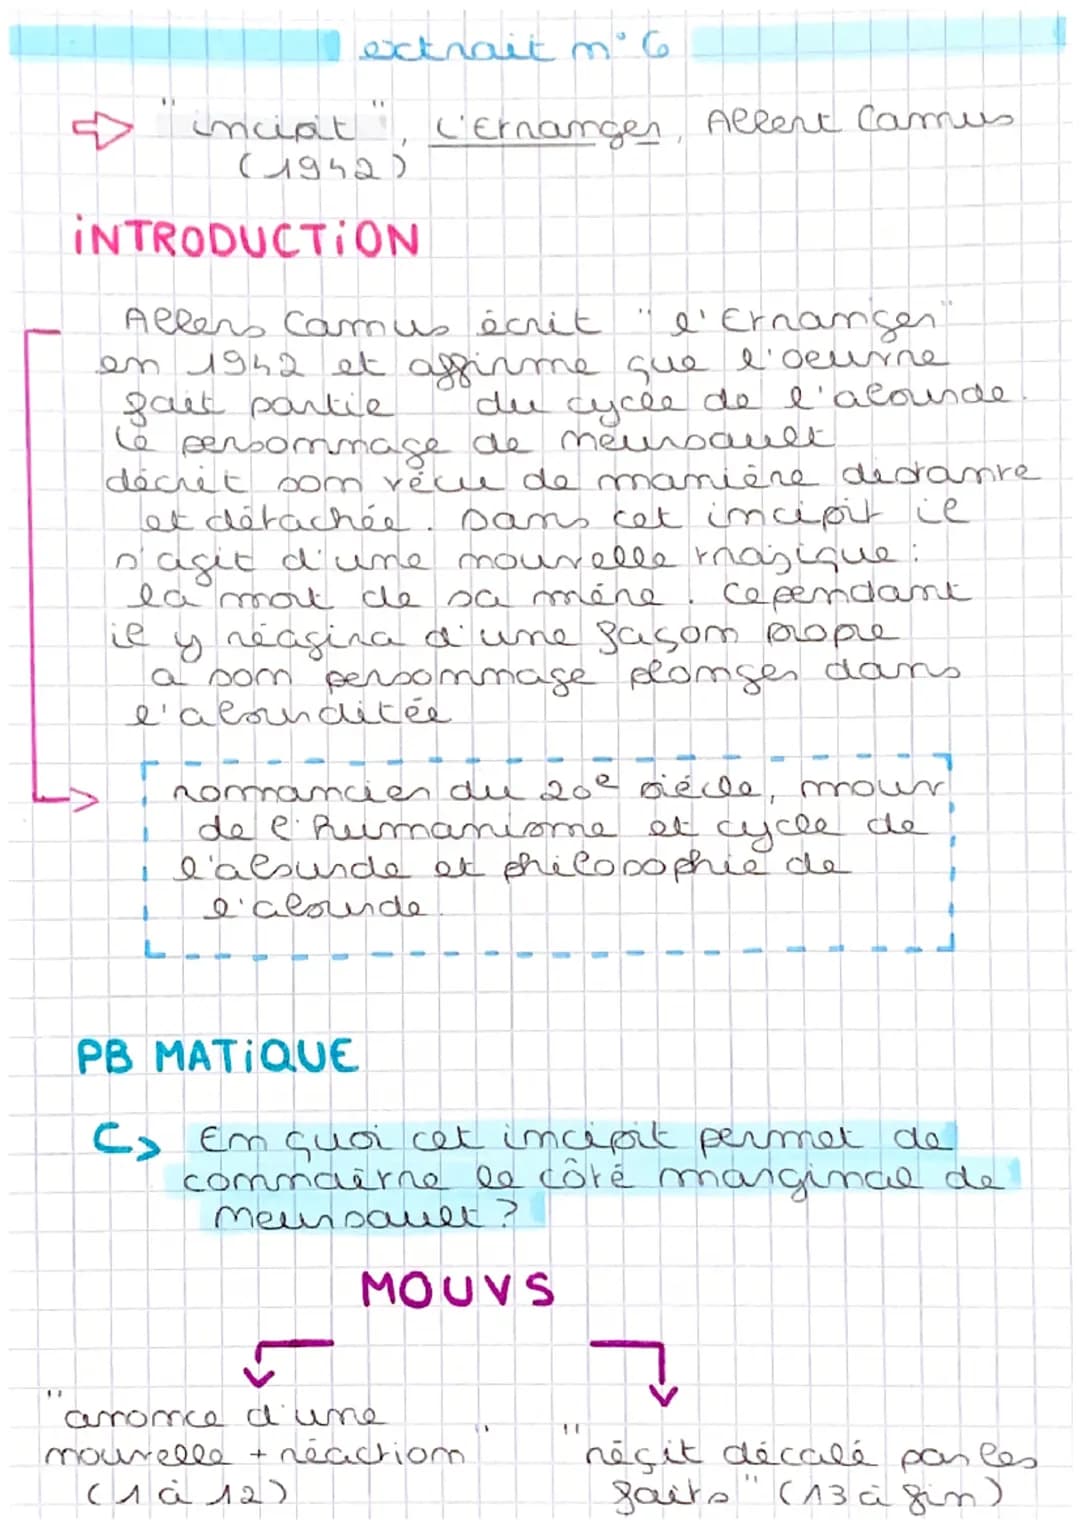 extrait n° 6
"incipit", L'Etranger, Albert Camus
(1942)
iNTRODUCTiON
Albert Camus écrit "l'Etranger"
en 1942 et affirme que l'oeuvre
fait partie du cycle de l'absurde.
Le personnage de meursault
décrit son vécu de manière distante
et détachée. Dans cet incipit il
s'agit d'une nouvelle tragique :
la mort de sa mère. Cependant
il y réagira d'une façon propre
a son personnage plonger dans
l'absurditée
romancier du 20e siècle, mouv
de l'humanisme et cycle de
l'absurde et philosophie de
l'absurde.
PB MATiQUE
En quoi cet incipit permet de
connaître le côté marginal de
Meursault ?
MOUVS
"annonce d'une
nouvelle + réaction"
(1 à 12)
"réçit décalé par les
faits" (13 à fin)